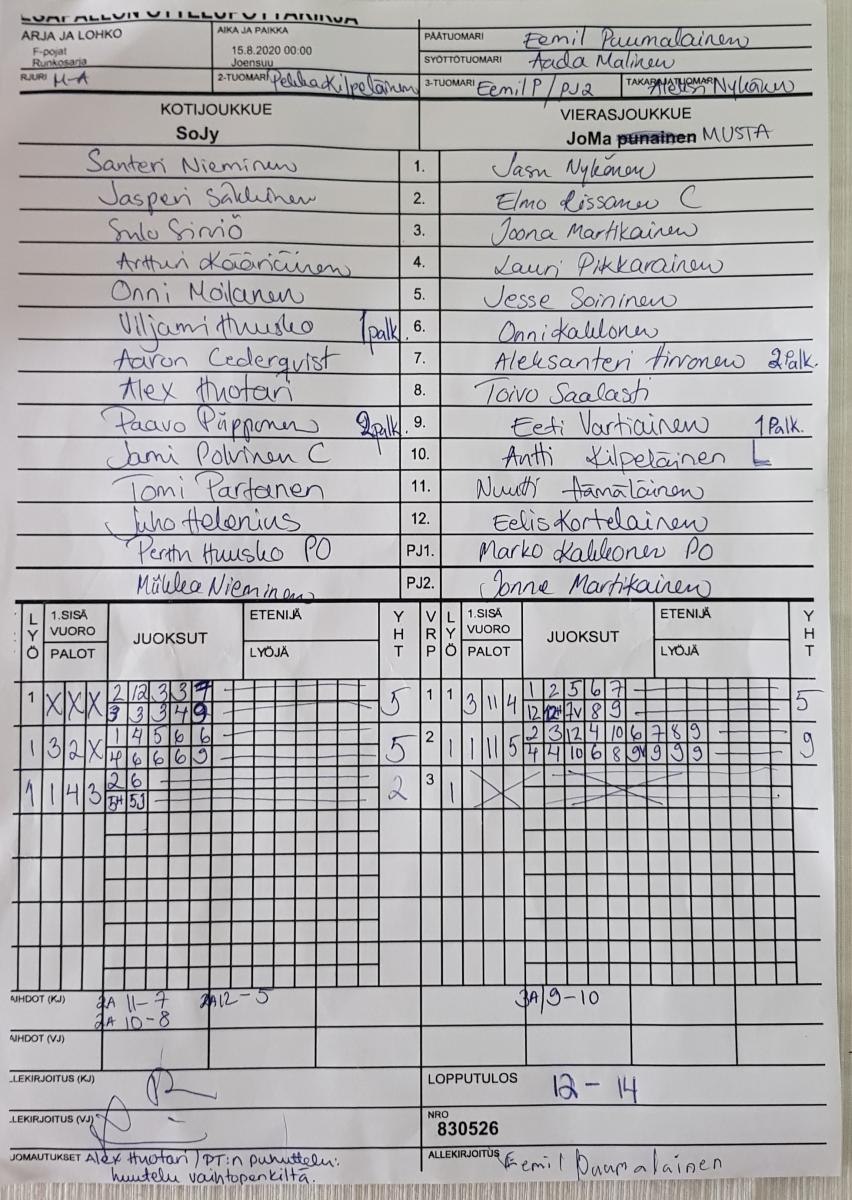 ARJA JA LOHKO
F-pojat
Runkosarja
AIKA JA PAIKKA
15.8.2020 00:00
Joensuu
PÄÄTUOMARI Eemil Puumalainen
SYÖTTÖTUOMARI Aada Malinen
RJURI M-A
2-TUOMARI Pekka Kilpeläinen
3-TUOMARI Eemil P / PJ2
TAKARAJATUOMARI Aleksi Nykänen
KOTIJOUKKUE
SoJy
VIERASJOUKKUE
JoMa punainen MUSTA
Santeri Nieminen 1. Jasu Nykänen
Jasperi Sakkinen 2. Elmo Rissanen C
Sulo Sirviö 3. Joona Martikainen
Artturi Kääriäinen 4. Lauri Pikkarainen
Onni Moilanen 5. Jesse Soininen
Viljami Huusko 1palk. 6. Onni Kakkonen
Aaron Cederqvist 7. Aleksanteri Hirvonen 2Palk.
Alex Huotari 8. Toivo Saalasti
Paavo Piipponen 2palk. 9. Eeti Vartiainen 1Palk.
Jami Polvinen C 10. Antti Kilpeläinen L
Tomi Partanen 11. Nuutti Hämäläinen
Juho Helenius 12. Eelis Kortelainen
Pertti Huusko PO PJ1. Marko Kakkonen PO
Miikka Nieminen PJ2. Jonne Martikainen
LYÖ 1.SISÄ VUORO PALOT JUOKSUT ETENIJÄ LYÖJÄ YHT VRP LYÖ 1.SISÄ VUORO PALOT JUOKSUT ETENIJÄ LYÖJÄ YHT
1 X X X 2 12 3 3 7 5 1 1 3 11 4 1 2 5 6 7 5
3 3 3 4 9 12 12H 7V 8 9
1 3 2 X 1 4 5 6 6 5 2 1 1 11 5 2 3 12 4 10 6 7 8 9 9
4 6 6 6 9 4 4 10 6 8 9V 9 9 9
1 1 4 3 2 6 2 3 1
5H 5J
AIHDOT (KJ) 2A 11-7 2A 12-5 3A/9-10
2A 10-8
AIHDOT (VJ)
LEKIRJOITUS (KJ)
LOPPUTULOS 12-14
LEKIRJOITUS (VJ)
NRO
830526
JOMAUTUKSET Alex Huotari / PT:n puhuttelu:
huutelu vaihtopenkiltä.
ALLEKIRJOITUS Eemil Puumalainen